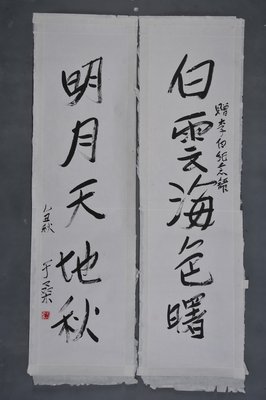 白雲海色曙
贈李白紀念館
明月天地秋
乙丑秋